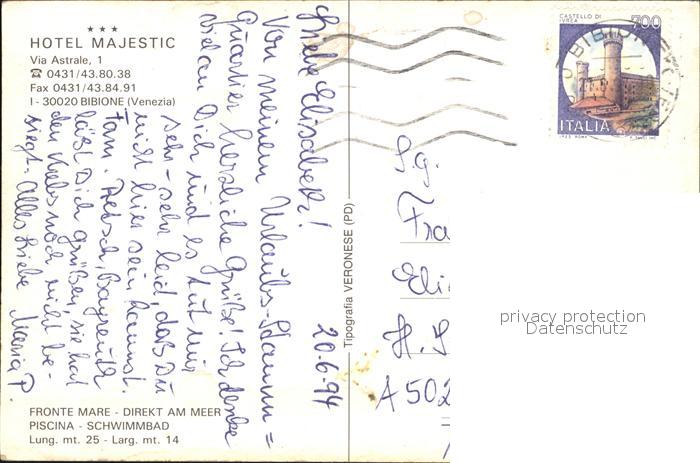 ★ ★ ★
HOTEL MAJESTIC
Via Astrale, 1
☎ 0431/43.80.38
Fax 0431/43.84.91
I - 30020 BIBIONE (Venezia)
20-6-94
Liebe Elisabeth!
Von meinem Urlaubs-Stamm=
quartier herzliche Grüße! Ich denke
viel an Dich und es tut mir
sehr-sehr leid, daß Du
nicht hier sein kannst.
Fam. Bayreuth
läßt Dich grüßen, sie hat
den Krebs noch nicht be-
siegt. Alles Liebe Maria P.
FRONTE MARE - DIREKT AM MEER
PISCINA - SCHWIMMBAD
Lung. mt. 25 - Larg. mt. 14
Tipografia VERONESE (PD)
CASTELLO DI
IVREA
700
ITALIA
BIBIONE
Fra
Eli
A 502
privacy protection
Datenschutz